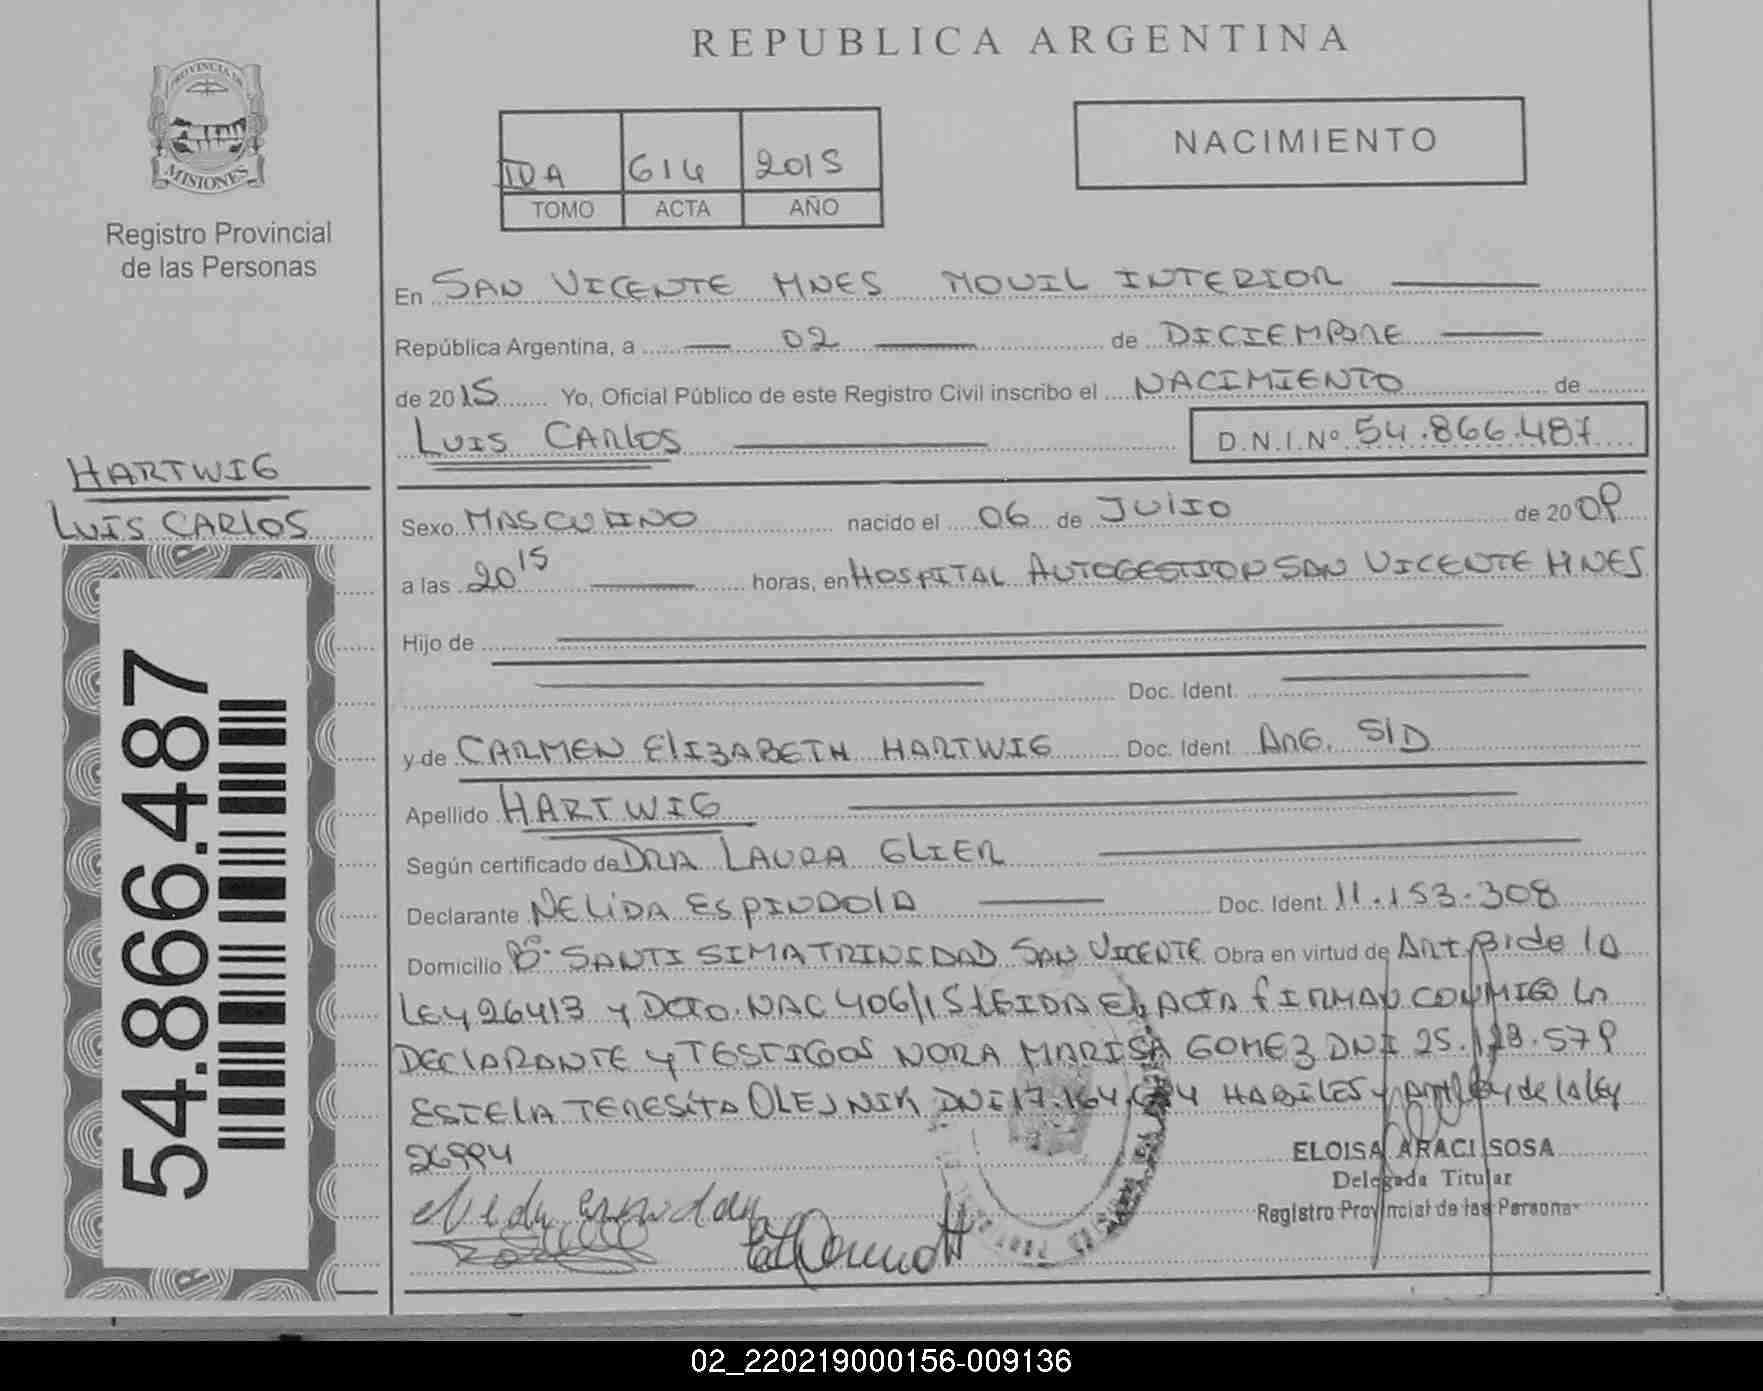 REPUBLICA ARGENTINA
PROVINCIA DE
MISIONES
Registro Provincial
de las Personas
IDA 614 2015
TOMO ACTA AÑO
NACIMIENTO
En SAN VICENTE MNES MOVIL INTERIOR
República Argentina, a 02 de DICIEMBRE
de 2015 Yo, Oficial Público de este Registro Civil inscribo el NACIMIENTO de
LUIS CARLOS D.N.I.Nº 54.866.487
HARTWIG
LUIS CARLOS
54.866.487
Sexo MASCULINO nacido el 06 de JULIO de 2009
a las 20 15 horas, en HOSPITAL AUTOGESTION SAN VICENTE MNES
Hijo de
Doc. Ident.
y de CARMEN ELIZABETH HARTWIG Doc. Ident. ARG. S/D
Apellido HARTWIG
Según certificado de DRA LAURA GLIER
Declarante NELIDA ESPINDOLA Doc. Ident. 11.153.308
Domicilio Bº SANTISIMA TRINIDAD SAN VICENTE Obra en virtud de ART de la
LEY 26413 y DCTO. NAC 406/15 LEIDA EL ACTA FIRMAN CONMIGO LA
DECLARANTE y TESTIGOS NORA MARISA GOMEZ DNI 25.
ESTELA TERESITA OLEJNIK DNI 17.164. HABILES y de la ley
26994
ELOISA ARACI SOSA
Delegada Titular
Registro Provincial de las Personas
02_220219000156-009136